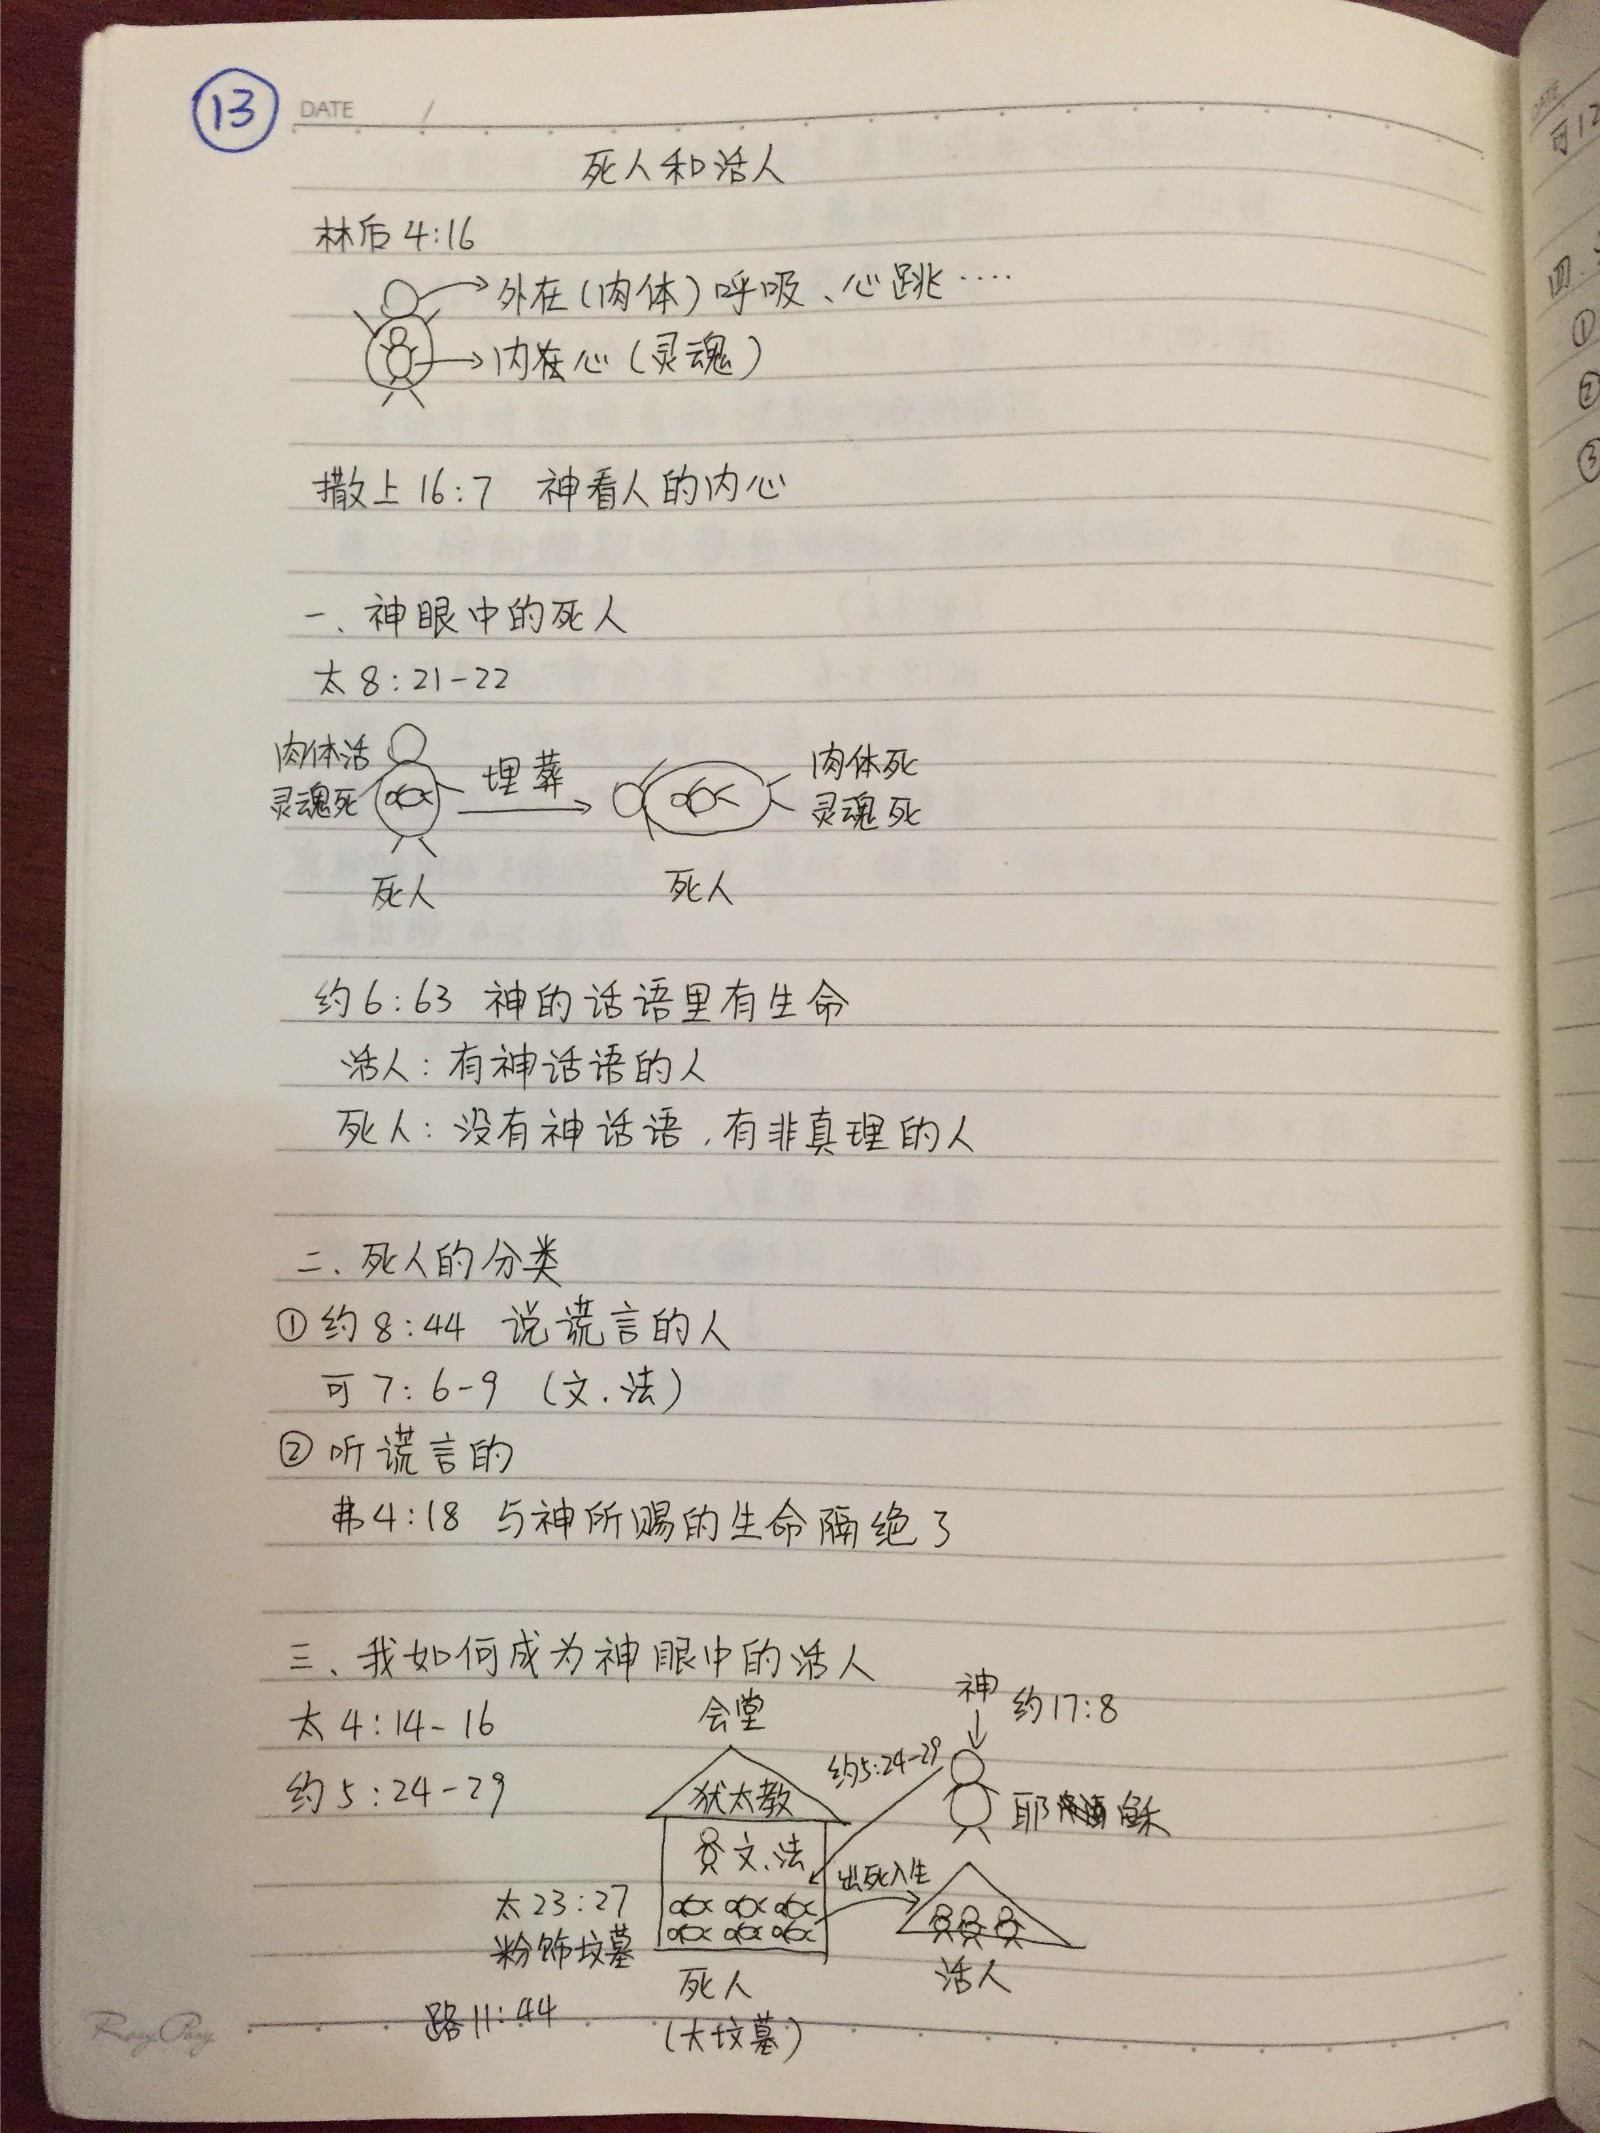 13 DATE /
死人和活人
林后4:16
外在(肉体)呼吸、心跳····
内在心(灵魂)
撒上16:7 神看人的内心
一、神眼中的死人
太8:21-22
肉体活
灵魂死
埋葬
肉体死
灵魂死
死人
死人
约6:63 神的话语里有生命
活人:有神话语的人
死人:没有神话语,有非真理的人
二、死人的分类
①约8:44 说谎言的人
可7:6-9 (文.法)
②听谎言的
弗4:18 与神所赐的生命隔绝了
三、我如何成为神眼中的活人
太4:14-16
约5:24-29
会堂
神 约17:8
约5:24-29
犹太教
耶稣
文.法
出死入生
太23:27
粉饰坟墓
死人
活人
路11:44
(大坟墓)
DATE
可12
四.
①
②
③